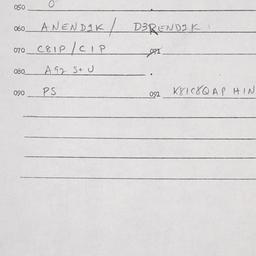 050 0
060 ANENDIK / D3RENDIK
070 C81P/CIP 071
080 A92 S+U
090 PS 091 K81C8QAP HIN